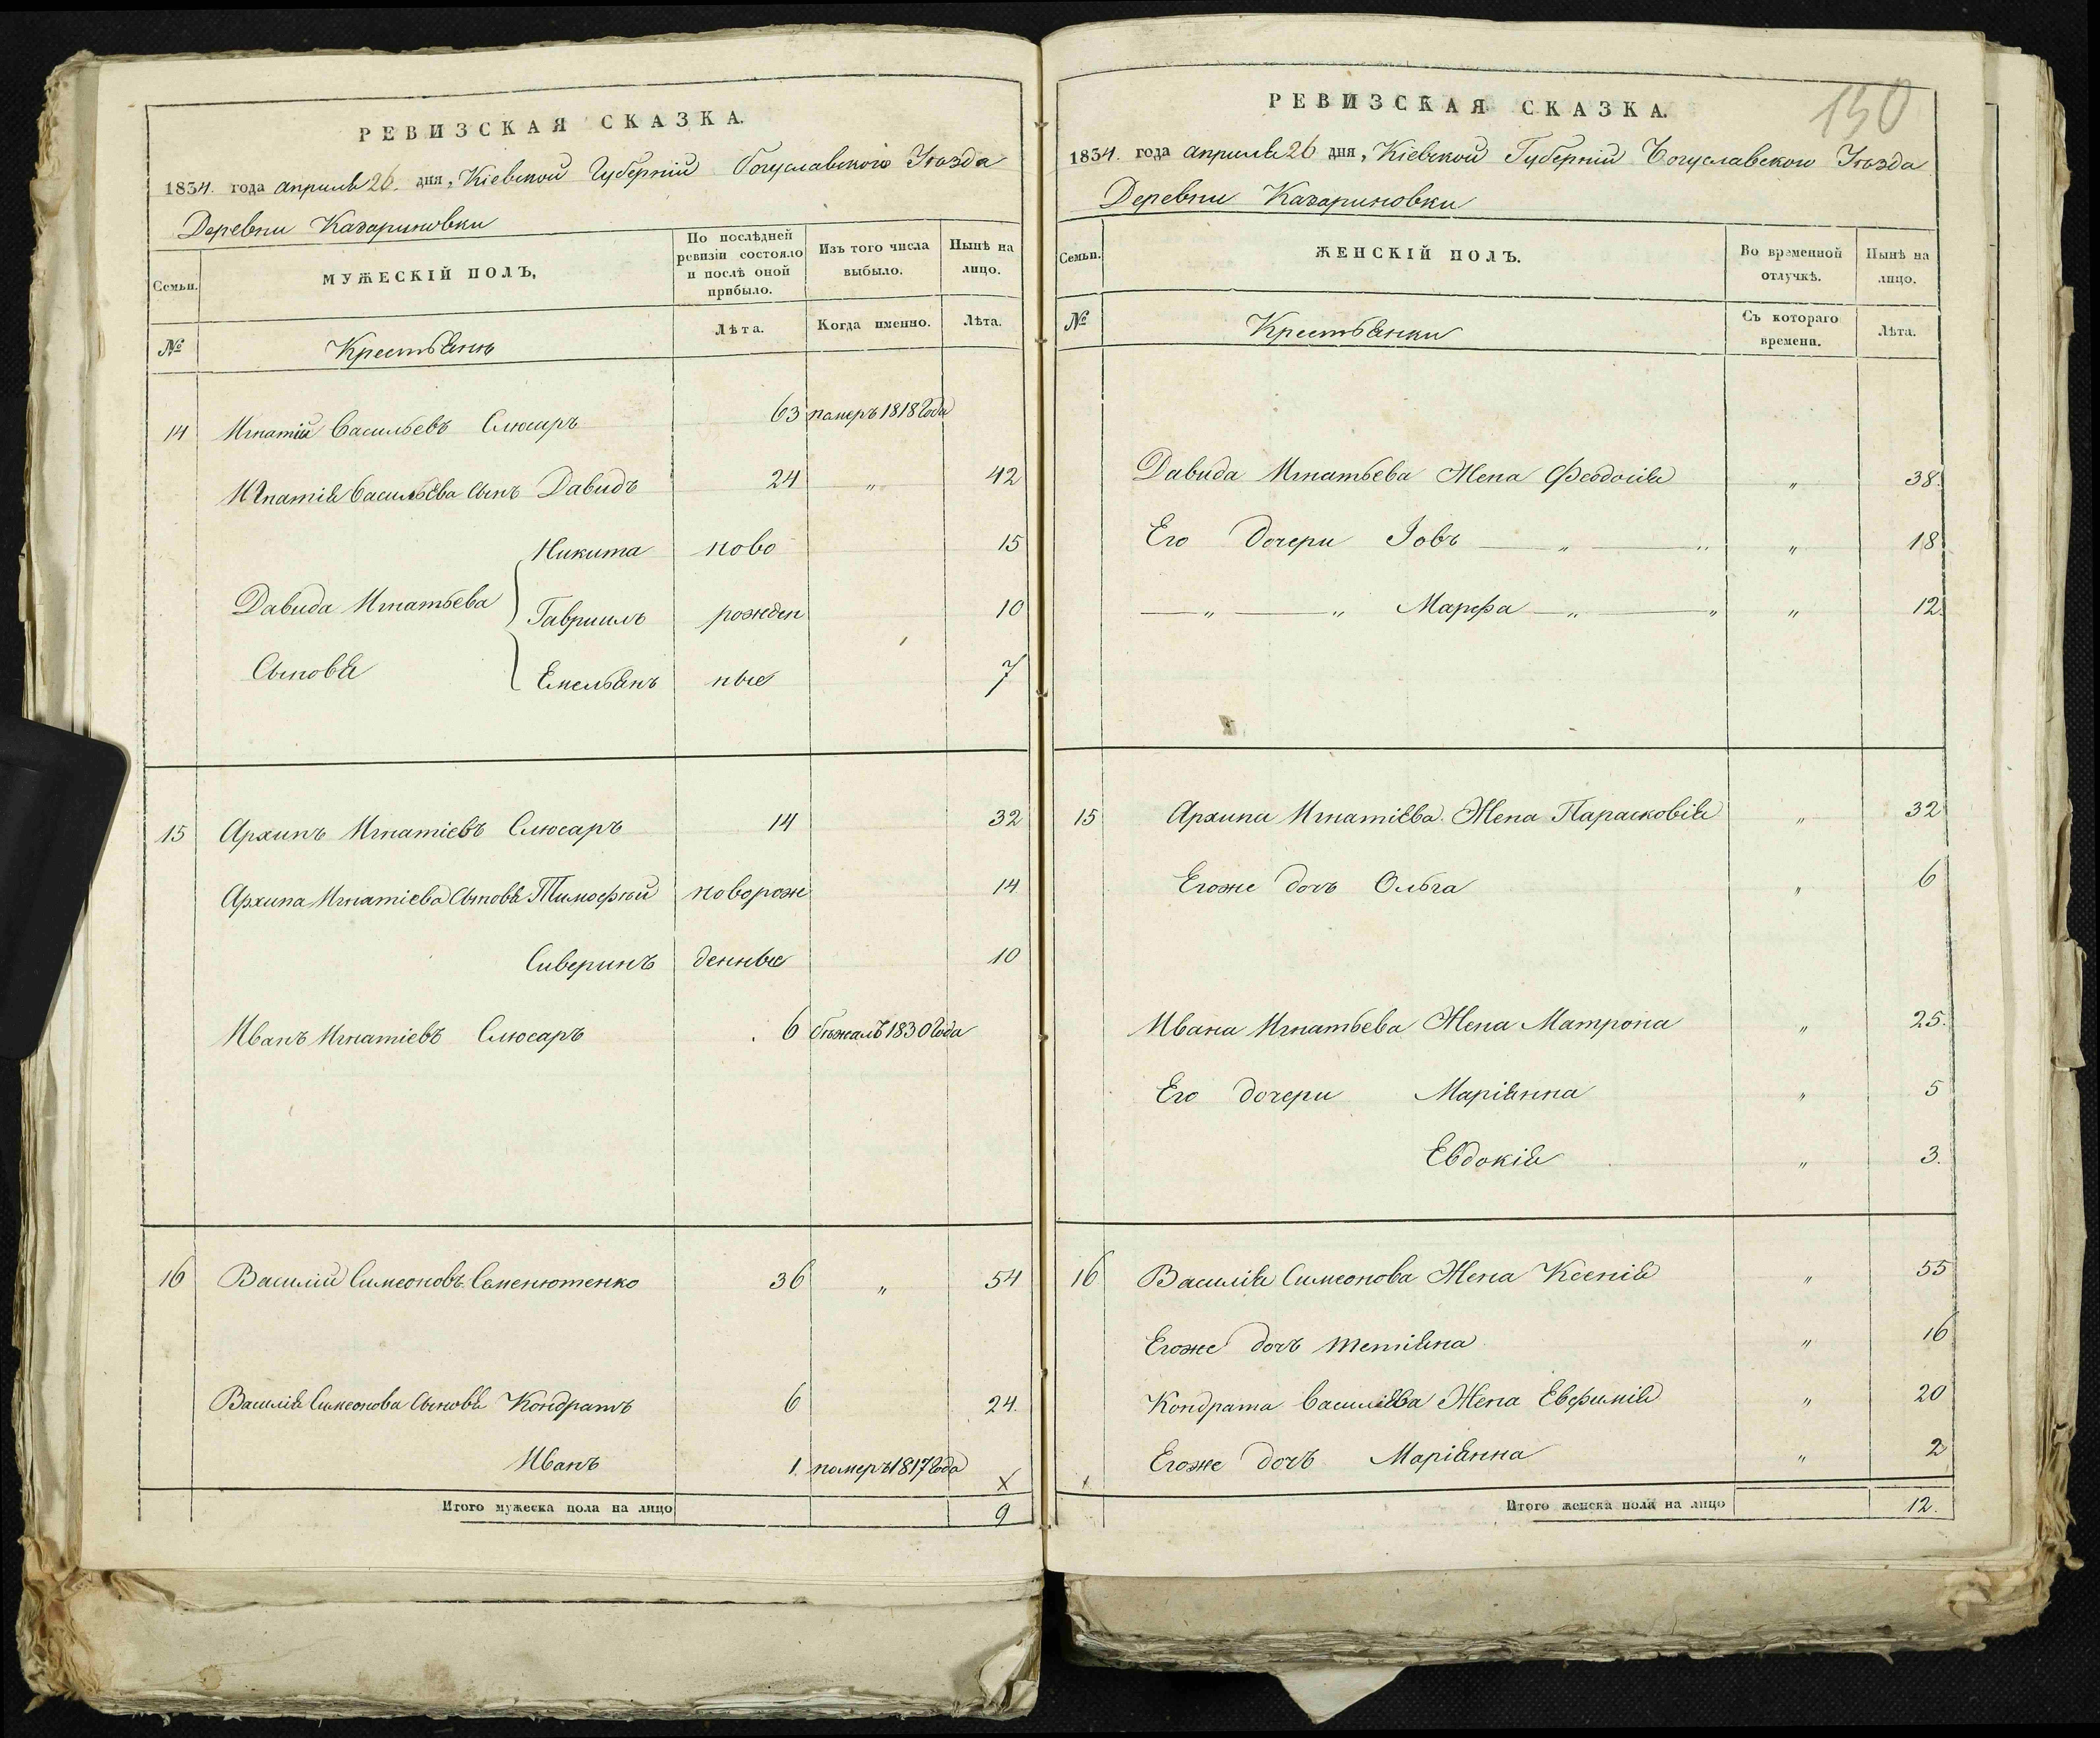 РЕВИЗСКАЯ СКАЗКА.
1834. года апреля 26. дня, Кіевской Губерніи Богуславского Уѣзда
Деревни Казариновки
Семьи.
МУЖЕСКІЙ ПОЛЪ,
По послѣдней ревизіи состояло и послѣ оной прибыло.
Изъ того числа выбыло.
Нынѣ на лицо.
№
Крестьянъ
Лѣта.
Когда именно.
Лѣта.
14 Игнатій Васильевъ Слюсаръ 63 померъ 1818 Года
Игнатія Васильева Сынъ Давидъ 24 „ 42
Никита ново 15
Давида Игнатьева Гавриилъ рожден 10
Сыновя Емельянъ ные 7
15 Архипъ Игнатіевъ Слюсаръ 14 32
Архипа Игнатіева Сыновя Тимофѣй поворож 14
Сиверинъ денные 10
Иванъ Игнатіевъ Слюсаръ 6 бѣжалъ 1830 Года
16 Василій Симеоновъ Семенютенко 36 „ 54
Василія Симеонова Сыновя Кондратъ 6 24.
Иванъ 1. померъ 1817 Года
X
Итого мужеска пола на лицо 9
130
РЕВИЗСКАЯ СКАЗКА.
1834. года апреля 26 дня, Кіевской Губерніи Богуславского Уѣзда
Деревни Казариновки
Семьи.
ЖЕНСКІЙ ПОЛЪ.
Во временной отлучкѣ.
Нынѣ на лицо.
№
Крестьянки
Съ котораго времени.
Лѣта.
Давида Игнатьева Жена Феодосія „ 38.
Его Дочери Іовъ — „ — „ „ 18
— „ — „ Марфа — „ — „ „ 12.
15 Архипа Игнатіева Жена Парасковія „ 32
Егоже дочъ Ольга „ 6
Ивана Игнатьева Жена Матрона „ 25.
Его дочери Маріянна „ 5
Евдокія „ 3.
16 Василія Симеонова Жена Ксенія „ 55
Егоже дочъ Тетіяна „ 16
Кондрата Василіева Жена Евфимія „ 20
Егоже дочъ Маріянна „ 2
X
Итого женска пола на лицо 12.